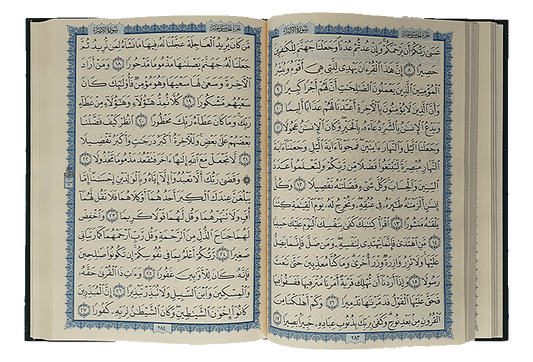 سُورَةُ الإِسْرَاءِ
عَسَىٰ رَبُّكُمْ أَن يَرْحَمَكُمْ وَإِنْ عُدتُّمْ عُدْنَا وَجَعَلْنَا جَهَنَّمَ لِلْكَٰفِرِينَ
حَصِيرًا ٨ إِنَّ هَٰذَا ٱلْقُرْءَانَ يَهْدِي لِلَّتِي هِيَ أَقْوَمُ وَيُبَشِّرُ
ٱلْمُؤْمِنِينَ ٱلَّذِينَ يَعْمَلُونَ ٱلصَّٰلِحَٰتِ أَنَّ لَهُمْ أَجْرًا كَبِيرًا ٩
وَأَنَّ ٱلَّذِينَ لَا يُؤْمِنُونَ بِٱلْءَاخِرَةِ أَعْتَدْنَا لَهُمْ عَذَابًا أَلِيمًا ١٠
وَيَدْعُ ٱلْإِنسَٰنُ بِٱلشَّرِّ دُعَآءَهُۥ بِٱلْخَيْرِ وَكَانَ ٱلْإِنسَٰنُ عَجُولًا ١١
وَجَعَلْنَا ٱلَّيْلَ وَٱلنَّهَارَ ءَايَتَيْنِ فَمَحَوْنَآ ءَايَةَ ٱلَّيْلِ وَجَعَلْنَآ ءَايَةَ
ٱلنَّهَارِ مُبْصِرَةً لِّتَبْتَغُوا۟ فَضْلًا مِّن رَّبِّكُمْ وَلِتَعْلَمُوا۟ عَدَدَ
ٱلسِّنِينَ وَٱلْحِسَابَ وَكُلَّ شَيْءٍ فَصَّلْنَٰهُ تَفْصِيلًا ١٢ وَكُلَّ
إِنسَٰنٍ أَلْزَمْنَٰهُ طَٰٓئِرَهُۥ فِي عُنُقِهِۦ وَنُخْرِجُ لَهُۥ يَوْمَ ٱلْقِيَٰمَةِ كِتَٰبًا
يَلْقَىٰهُ مَنشُورًا ١٣ ٱقْرَأْ كِتَٰبَكَ كَفَىٰ بِنَفْسِكَ ٱلْيَوْمَ عَلَيْكَ حَسِيبًا
١٤ مَّنِ ٱهْتَدَىٰ فَإِنَّمَا يَهْتَدِي لِنَفْسِهِۦ وَمَن ضَلَّ فَإِنَّمَا يَضِلُّ
عَلَيْهَا وَلَا تَزِرُ وَازِرَةٌ وِزْرَ أُخْرَىٰ وَمَا كُنَّا مُعَذِّبِينَ حَتَّىٰ نَبْعَثَ
رَسُولًا ١٥ وَإِذَآ أَرَدْنَآ أَن نُّهْلِكَ قَرْيَةً أَمَرْنَا مُتْرَفِيهَا فَفَسَقُوا۟ فِيهَا
فَحَقَّ عَلَيْهَا ٱلْقَوْلُ فَدَمَّرْنَٰهَا تَدْمِيرًا ١٦ وَكَمْ أَهْلَكْنَا مِنَ
ٱلْقُرُونِ مِنۢ بَعْدِ نُوحٍ وَكَفَىٰ بِرَبِّكَ بِذُنُوبِ عِبَادِهِۦ خَبِيرًۢا بَصِيرًا ١٧
٢٨٣
سُورَةُ الإِسْرَاءِ
مَّن كَانَ يُرِيدُ ٱلْعَاجِلَةَ عَجَّلْنَا لَهُۥ فِيهَا مَا نَشَآءُ لِمَن نُّرِيدُ ثُمَّ
جَعَلْنَا لَهُۥ جَهَنَّمَ يَصْلَىٰهَا مَذْمُومًا مَّدْحُورًا ١٨ وَمَنْ أَرَادَ
ٱلْءَاخِرَةَ وَسَعَىٰ لَهَا سَعْيَهَا وَهُوَ مُؤْمِنٌ فَأُو۟لَٰٓئِكَ كَانَ
سَعْيُهُم مَّشْكُورًا ١٩ كُلًّا نُّمِدُّ هَٰٓؤُلَآءِ وَهَٰٓؤُلَآءِ مِنْ عَطَآءِ
رَبِّكَ وَمَا كَانَ عَطَآءُ رَبِّكَ مَحْظُورًا ٢٠ ٱنظُرْ كَيْفَ فَضَّلْنَا
بَعْضَهُمْ عَلَىٰ بَعْضٍ وَلَلْءَاخِرَةُ أَكْبَرُ دَرَجَٰتٍ وَأَكْبَرُ تَفْضِيلًا
٢١ لَّا تَجْعَلْ مَعَ ٱللَّهِ إِلَٰهًا ءَاخَرَ فَتَقْعُدَ مَذْمُومًا مَّخْذُولًا ٢٢
۞ وَقَضَىٰ رَبُّكَ أَلَّا تَعْبُدُوٓا۟ إِلَّآ إِيَّاهُ وَبِٱلْوَٰلِدَيْنِ إِحْسَٰنًا إِمَّا
يَبْلُغَنَّ عِندَكَ ٱلْكِبَرَ أَحَدُهُمَآ أَوْ كِلَاهُمَا فَلَا تَقُل لَّهُمَآ
أُفٍّ وَلَا تَنْهَرْهُمَا وَقُل لَّهُمَا قَوْلًا كَرِيمًا ٢٣ وَٱخْفِضْ
لَهُمَا جَنَاحَ ٱلذُّلِّ مِنَ ٱلرَّحْمَةِ وَقُل رَّبِّ ٱرْحَمْهُمَا كَمَا رَبَّيَانِي
صَغِيرًا ٢٤ رَّبُّكُمْ أَعْلَمُ بِمَا فِي نُفُوسِكُمْ إِن تَكُونُوا۟ صَٰلِحِينَ
فَإِنَّهُۥ كَانَ لِلْأَوَّٰبِينَ غَفُورًا ٢٥ وَءَاتِ ذَا ٱلْقُرْبَىٰ حَقَّهُۥ
وَٱلْمِسْكِينَ وَٱبْنَ ٱلسَّبِيلِ وَلَا تُبَذِّرْ تَبْذِيرًا ٢٦ إِنَّ ٱلْمُبَذِّرِينَ
كَانُوٓا۟ إِخْوَٰنَ ٱلشَّيَٰطِينِ وَكَانَ ٱلشَّيْطَٰنُ لِرَبِّهِۦ كَفُورًا ٢٧
٢٨٤